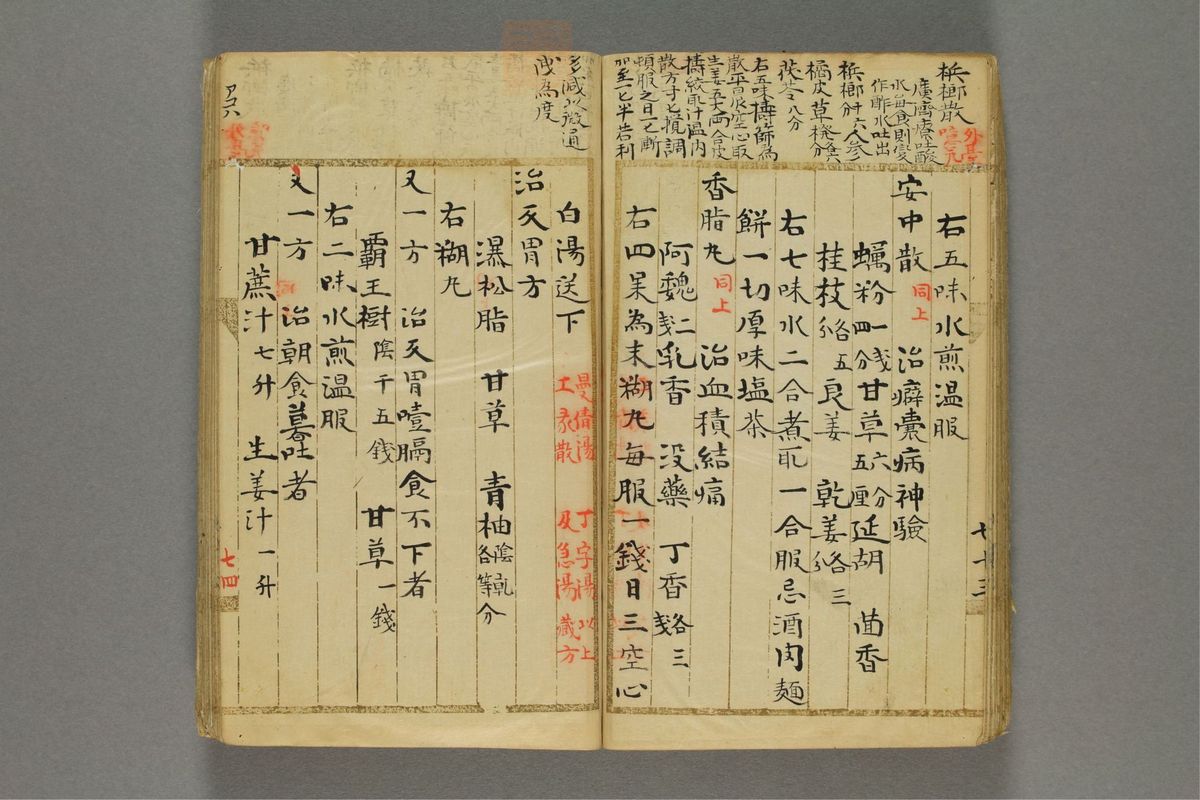 檳榔散
廣濟療吐酸
水每食則變
作酢水吐出
檳榔 分十六 人參
橘皮 草橃 各六分
茯苓 八分
右五味擣篩為
散平旦空心取
生姜五大両合皮
擣絞取汁温内
散方寸匕攪調
頓服之日一
加至一匕半若利
右五味水煎温服
安中散 同上 治癖囊病神驗
蠣粉 一戔四分 甘草 六分五厘 延胡 茴香
桂枝 各五分 良姜 乾姜 各三分
右七味水二合煮取一合服忌酒肉麺
餅一切厚味塩茶
香脂丸 同上 治血積結痛
阿魏 二戔 乳香 没藥 丁香 各三戔
右四味為末糊丸毎服一錢日三空心
七十三
多減以微通
洩為度
白湯送下
丁字湯 以上
及急湯 蔵方
治反胃方
瀑松脂 甘草 青柚 陰乾各等分
右糊丸
又一方 治反胃噎膈食不下者
覇王樹 陰干五錢 甘草 一錢
右二味水煎温服
又一方 治朝食暮吐者
甘蔗汁 七升 生姜汁 一升
七四